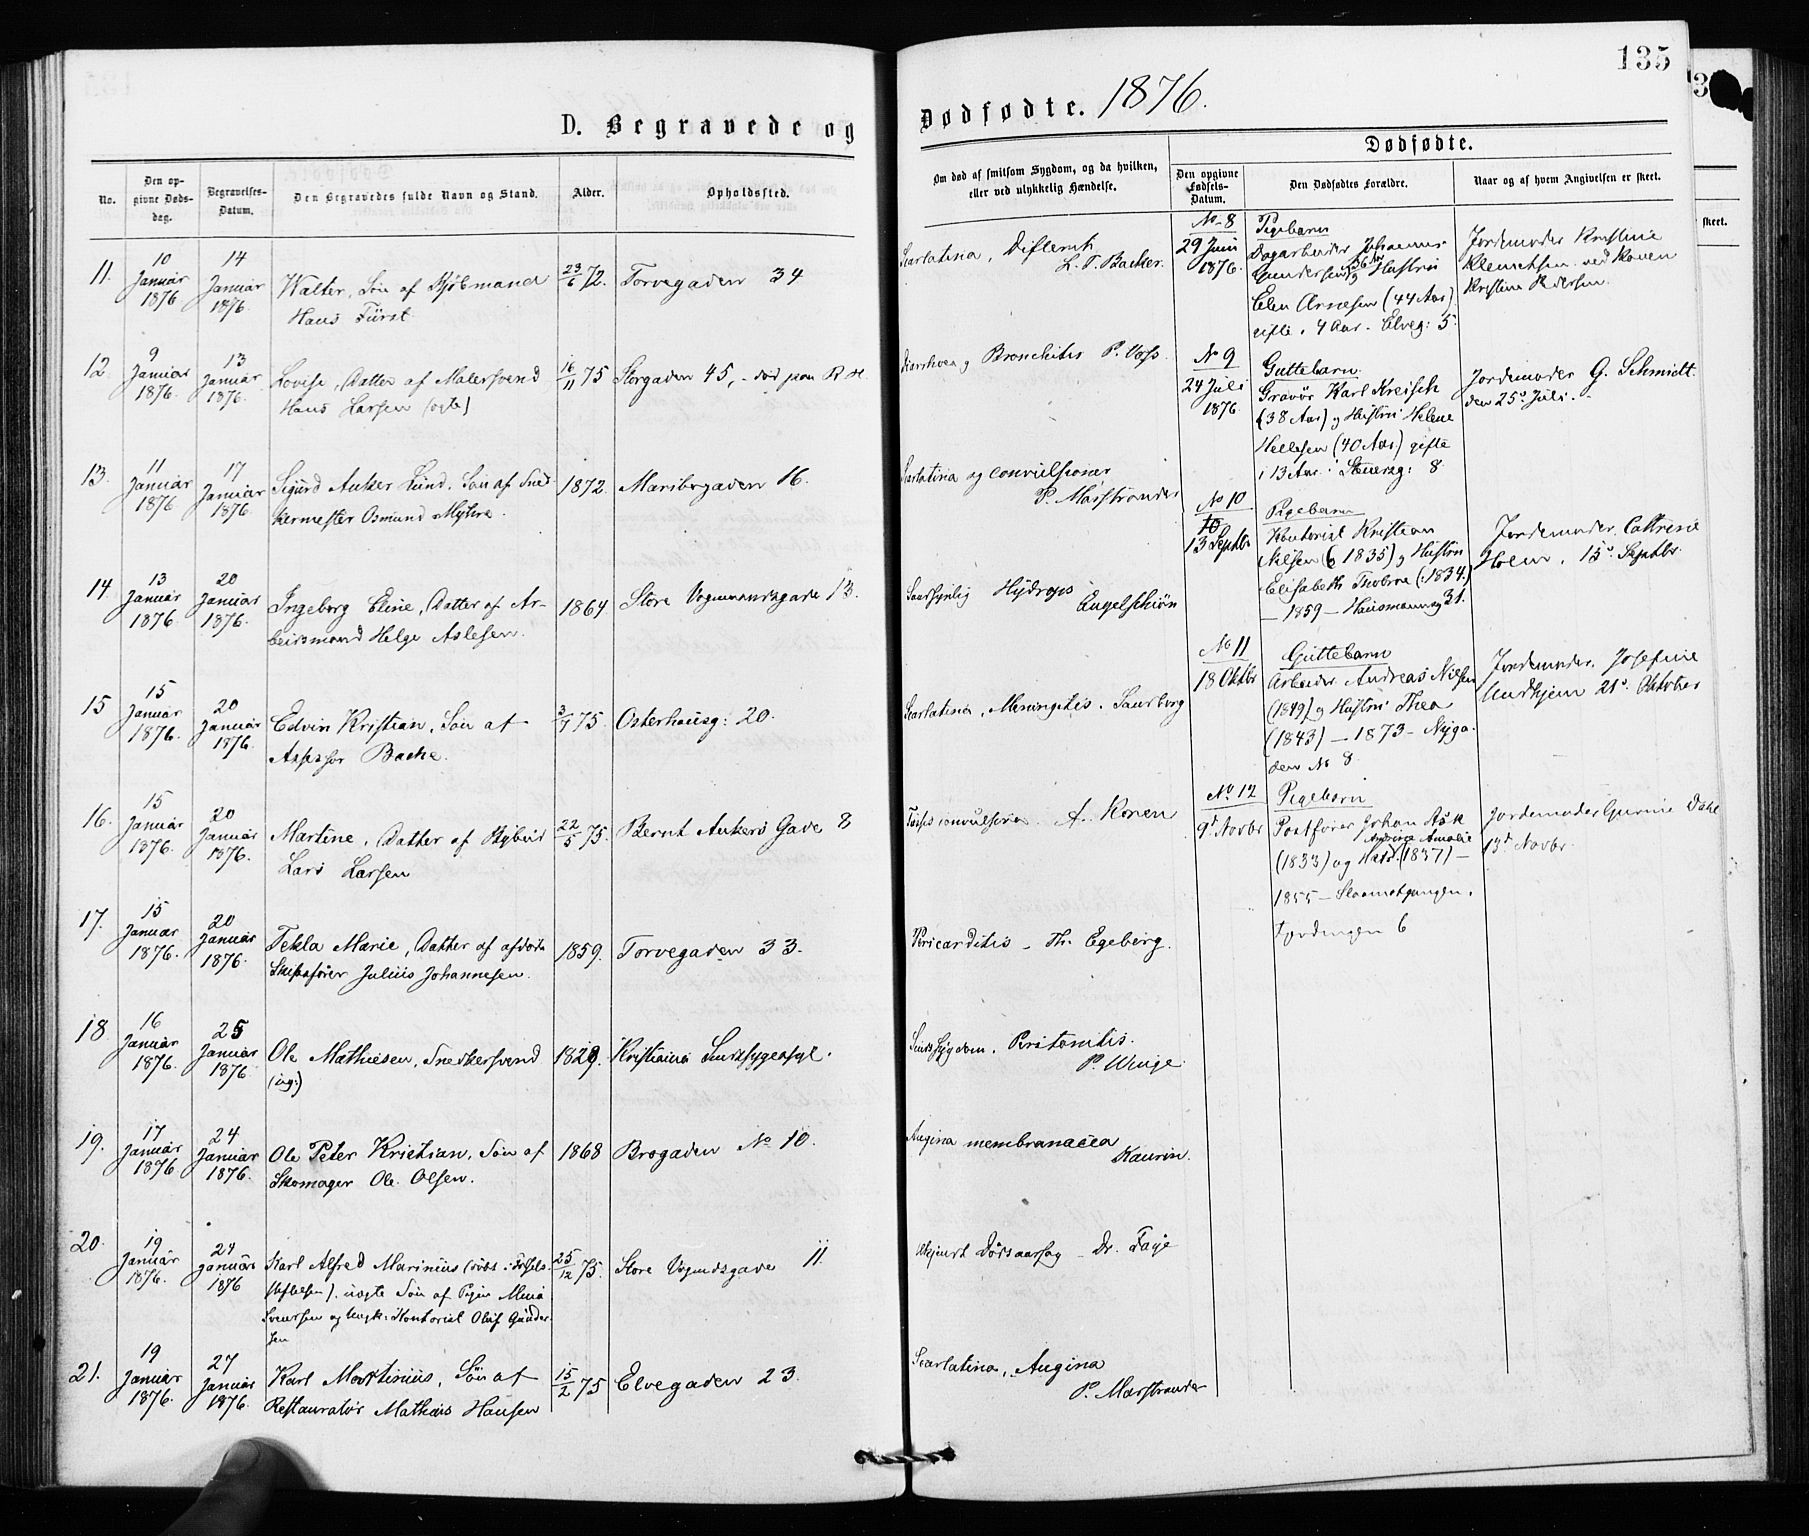 135
D. Begravede og Dødfødte. 1876.
No.
Den opgivne Dødsdag.
Begravelses-Datum.
Den Begravedes fulde Navn og Stand.
Alder.
Opholdssted.
Om død af smitsom Sygdom, og da hvilken, eller ved ulykkelig Hændelse.
Dødfødte.
Den opgivne Fødsels-Datum.
Den Dødfødtes Forældre.
Naar og af hvem Angivelsen er skeet.
skeet.
11. 10 Januar 1876 14 Januar 1876. Walter, Søn af Kjøbmand
Hans Fürst. 23/6 72. Torvegaden 34
Scarlatina, Difterit
L. T. Backer.
12. 9 Januar 1876. 13 Januar 1876. Lovise, Datter af Malersvend
Hans Larsen (ægte) 16/11 75 Storgaden 45, - død paa R. H.
Bronchitis P. Voss.
13. 11 Januar 1876 17 Januar 1876. Sigurd Anker Lund, Søn af Sned-
kermester Osmund Myhre. 1872. Maribogaden 16.
Scarlatina og convulsioner
P. Marstrander
14. 13 Januar 1876. 20 Januar 1876. Ingeborg Eline, Datter af Ar-
beidsmand Helge Aslesen. 1864 Store Vognmandsgade 13.
Hydrops
Engelschiøn
15 15 Januar 1876. 20 Januar 1876. Edvin Kristian, Søn af
Assessor Backe. 75. Osterhausg: 20.
Scarlatina, Meningitis.
16. 15 Januar 1876. 20 Januar 1876. Martine, Datter af Bybud
Lars Larsen 22/5 75. Bernt Ankers Gade 8
A. Koren
17. 15 Januar 1876. 20 Januar 1876. Tekla Marie, Datter af afdøde
Skibsfører Julius Johannesen. 1859. Torvegaden 33.
Pericarditis - Th. Egeberg.
18 16 Januar 1876. 25 Januar 1876. Ole Mathiesen, Snedkersvend
(ug:) 1829. Kristiania Sindsygeasyl.
Sindssygdom. Peritonitis.
P. Winge.
19. 17 Januar 1876 24 Januar 1876. Ole Peter Kristian, Søn af
Skomager Ole Olsen. 1868 Brogaden No 10.
Angina membranacea
Kaurin.
20. 19 Januar 1876. 24 Januar 1876 Karl Alfred Marinius (døbt i Fødsels-
stiftelsen). uægte Søn af Pigen Mina
Svendsen og Ungk: Kontorist Olaf Gunder-
sen 25/12 75. Store Vogndsgade 11.
Ukjendt Dødsaarsag - Dr. Faye
21. 19 Januar 1876. 27 Januar 1876. Karl Martinius, Søn af
Restauratør Mathias Hansen 15/2 75 Elvegaden 23.
Scarlatina, Angina
P. Marstrander
No 8
29 Juni 1876.
Pigebarn
Dagarbeider Johannes
Gundersen (36 Aar) og Hustru
Elen Arnesen (44 Aar)
gifte i 4 Aar. Elveg: 5.
Jordemoder Kristine
Klemetsen ved Konen
Kristine Pedersen.
No 9
24 Juli 1876
Guttebarn.
Gravør Karl Kreisch
(38 Aar) og Hustru Helene
Hellesen (40 Aar) gifte
i 13 Aar. Steensg: 8.
Jordemoder G. Schmidt.
den 25de Juli.
No 10
13 Septbr
Pigebarn
Kontorist Kristian
Nilsen (f. 1835) og Hustru
Elisabeth (1834.)
- 1859 - Hausmannsg 31.
Jordemoder Cattrine
Holm, 15de Septbr.
No 11
18 Oktbr
Guttebarn
Arbeider Andreas Nilsen
(1849) og Hustru Thea
(1843) - 1873 - Nyga-
den No 8
Jordemoder Josefine
21de Oktober
No 12
9de Novbr
Pigebarn
Postfører Johan Ask
(1833) og Hust. Amalie (1837) -
1855 -
Tyvdingen 6
Jordemoder Gurine Dahl
13de Novbr.